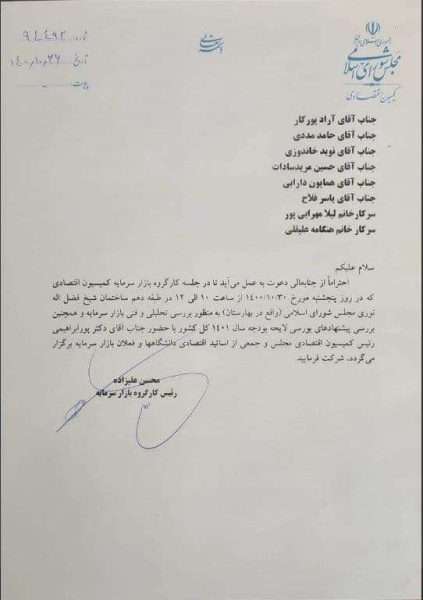 جمهوری اسلامی ایران
مجلس شورای اسلامی
کمیسیون اقتصادی
بسمه تعالی
شماره ۹۱۴۹۲
تاریخ ۱۴۰۰/۱۰/۲۶
پیوست
جناب آقای آراد پورکار
جناب آقای حامد مددی
جناب آقای نوید خاندوزی
جناب آقای حسین مریدسادات
جناب آقای همایون دارابی
جناب آقای یاسر فلاح
سرکارخانم لیلا مهرابی پور
سرکار خانم هنگامه علیقلی
سلام علیکم
احتراماً از جنابعالی دعوت به عمل می‌آید تا در جلسه کارگروه بازار سرمایه کمیسیون اقتصادی
که در روز پنجشنبه مورخ ۱۴۰۰/۱۰/۳۰ از ساعت ۱۰ الی ۱۲ در طبقه دهم ساختمان شیخ فضل اله
نوری مجلس شورای اسلامی (واقع در بهارستان) به منظور بررسی تحلیلی و فنی بازار سرمایه و همچنین
بررسی پیشنهادهای بورسی لایحه بودجه سال ۱۴۰۱ کل کشور با حضور جناب آقای دکتر پورابراهیمی
رئیس کمیسیون اقتصادی مجلس و جمعی از اساتید اقتصادی دانشگاهها و فعلان بازار سرمایه برگزار
می‌گردد، شرکت فرمایید.
محسن علیزاده
رئیس کارگروه بازار سرمایه